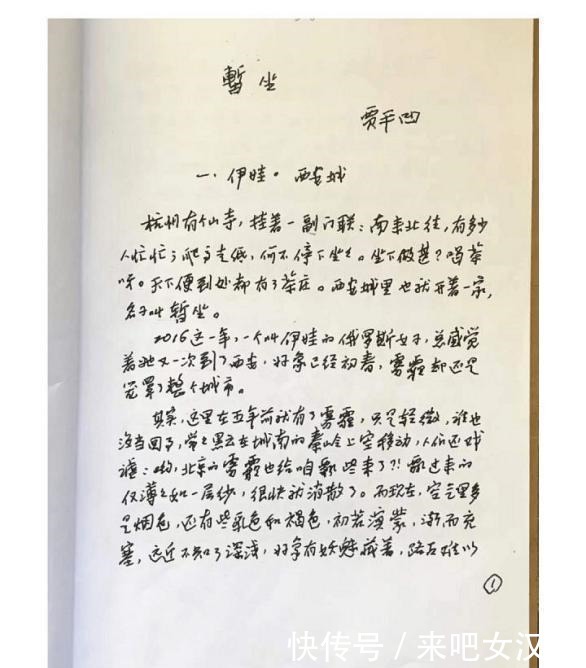 暂坐
贾平凹
一·伊娃。西安城
杭州有个山寺，挂着一副门联：南来北往，有多少
人忙忙；爬高走低，何不停下坐坐。坐下做甚？喝茶
呀。天下便到处都有了茶庄。西安城里也就开着一家，
名字叫暂坐。
2016这一年，一个叫伊娃的俄罗斯女子，总感觉
着她又一次到了西安，好象已经初春，雾霾却还是
笼罩了整个城市。
其实，这里在五年前就有了雾霾，只是轻微，谁也
没当回事，常常黑云在城南的秦岭上空移动，人们还戏
谑：哟，北京的雾霾也给咱飘些来了？！飘过来的
仅薄薄如一层纱，很快就消散了。而现在，空气里多
是烟色，还有些乳色和褐色，初若溟蒙，渐而充
塞，远近不知了深浅，好象有妖魅藏着，路反难以
1
快传号 / 来吧女汉